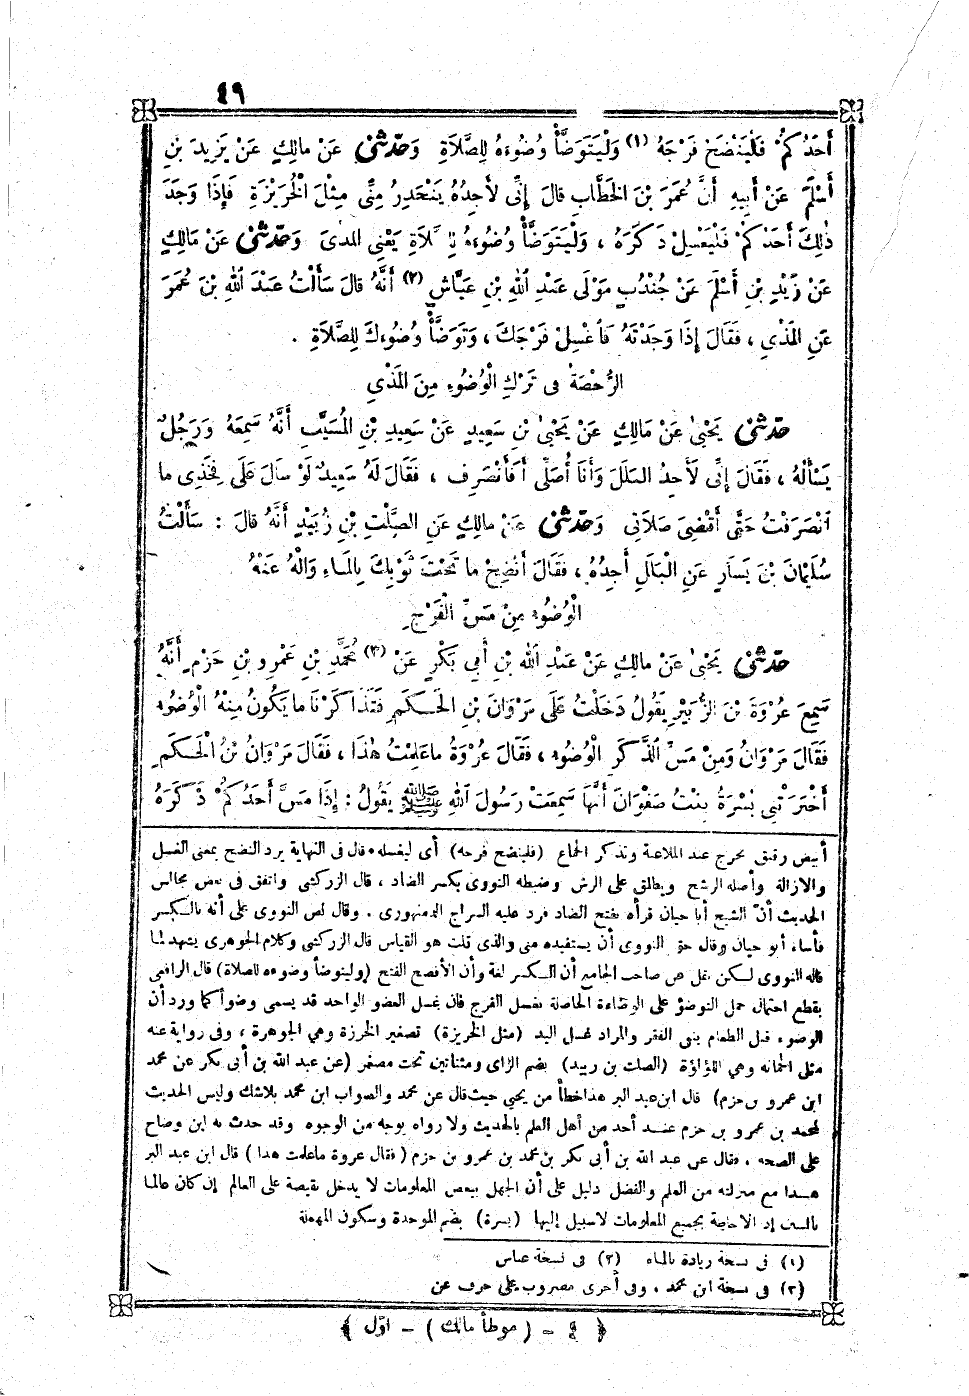 ٤٩
أَحَدُكُمْ فَلْيَنْضَحْ فَرْجَهُ (١) وَلْيَتَوَضَّأْ وُضُوءَهُ لِلصَّلَاةِ وَحَدَّثَنِي عَنْ مَالِكٍ عَنْ يَزِيدَ بْنِ
أَسْلَمَ عَنْ أَبِيهِ أَنَّ عُمَرَ بْنَ الخَطَّابِ قَالَ إِنِّي لَأَجِدُهُ يَنْحَدِرُ مِنِّي مِثْلَ الْخُرَيْزَةِ فَإِذَا وَجَدَ
ذٰلِكَ أَحَدُكُمْ فَلْيَغْسِلْ ذَكَرَهُ ، وَلْيَتَوَضَّأْ وُضُوءَهُ لِلصَّلَاةِ يَعْنِي المَذْيَ وَحَدَّثَنِي عَنْ مَالِكٍ
عَنْ زَيْدِ بْنِ أَسْلَمَ عَنْ جُنْدُبٍ مَوْلَى عَبْدِ اللهِ بْنِ عَيَّاشٍ (٢) أَنَّهُ قَالَ سَأَلْتُ عَبْدَ اللهِ بْنَ عُمَرَ
عَنِ المَذْيِ ، فَقَالَ إِذَا وَجَدْتَهُ فَاغْسِلْ فَرْجَكَ ، وَتَوَضَّأْ وُضُوءَكَ لِلصَّلَاةِ .
الرُّخْصَةُ فِي تَرْكِ الْوُضُوءِ مِنَ المَذْيِ
حَدَّثَنِي يَحْيَى عَنْ مَالِكٍ عَنْ يَحْيَى بْنِ سَعِيدٍ عَنْ سَعِيدِ بْنِ المُسَيَّبِ أَنَّهُ سَمِعَهُ وَرَجُلٌ
يَسْأَلُهُ ، فَقَالَ إِنِّي لَأَجِدُ البَلَلَ وَأَنَا أُصَلِّي أَفَأَنْصَرِفُ ، فَقَالَ لَهُ سَعِيدٌ لَوْ سَالَ عَلَى فَخِذِي مَا
انْصَرَفْتُ حَتَّى أَقْضِيَ صَلَاتِي وَحَدَّثَنِي عَنْ مَالِكٍ عَنِ الصَّلْتِ بْنِ زُيَيْدٍ أَنَّهُ قَالَ : سَأَلْتُ
سُلَيْمَانَ بْنَ يَسَارٍ عَنِ الْبَلَلِ أَجِدُهُ ، فَقَالَ انْضَحْ مَا تَحْتَ ثَوْبِكَ بِالمَاءِ وَالْهُ عَنْهُ
الْوُضُوءُ مِنْ مَسِّ الْفَرْجِ
حَدَّثَنِي يَحْيَى عَنْ مَالِكٍ عَنْ عَبْدِ اللهِ بْنِ أَبِي بَكْرٍ عَنْ (٣) مُحَمَّدِ بْنِ عَمْرِو بْنِ حَزْمٍ أَنَّهُ
سَمِعَ عُرْوَةَ بْنَ الزُّبَيْرِ يَقُولُ دَخَلْتُ عَلَى مَرْوَانَ بْنِ الحَكَمِ فَتَذَاكَرْنَا مَا يَكُونُ مِنْهُ الْوُضُوءُ
فَقَالَ مَرْوَانُ وَمِنْ مَسِّ الذَّكَرِ الْوُضُوءُ ، فَقَالَ عُرْوَةُ مَا عَلِمْتُ هٰذَا ، فَقَالَ مَرْوَانُ بْنُ الْحَكَمِ
أَخْبَرَتْنِي بُسْرَةُ بِنْتُ صَفْوَانَ أَنَّهَا سَمِعَتْ رَسُولَ اللهِ ﷺ يَقُولُ : إِذَا مَسَّ أَحَدُكُمْ ذَكَرَهُ
أبيض رقيق يخرج عند الملاعبة وتذكر الجماع (فلينضح فرجه) أي ليغسله ، قال في النهاية يرد النضح بمعنى الغسل
والازالة وأصله الرشح ويطلق على الرش وضبطه النووى بكسر الضاد ، قال الزركشى واتفق فى بعض مجالس
الحديث أن الشيخ أبا حيان قرأه بفتح الضاد فرد عليه السراج الدمنهورى . وقال نص النووى على أنه بالكسر
فأساء أبو حيان وقال حق النووى أن يستفيده منى والذى قلت هو القياس قال الزركشى وكلام الجوهرى يشهد لما
قاله النووى لكن نقل عن صاحب الجامع أن الكسر لغة وأن الأفصح الفتح (وليتوضأ وضوءه للصلاة) قال الرافعى
يقطع احتمال حمل التوضؤ على الوضاءة الحاصلة بغسل الفرج فان غسل العضو الواحد قد يسمى وضوأ كما ورد أن
الوضوء قبل الطعام ينفى الفقر والمراد غسل اليد (مثل الخريزة) تصغير الخرزة وهي الجوهرة ، وفى رواية عنه
مثل الجمانه وهي اللؤلؤة (الصلت بن زييد) بضم الزاى ومثناتين تحت مصغر (عن عبد الله بن أبى بكر عن محمد
ابن عمرو بن حزم) قال ابن عبد البر هذا خطأ من يحيى حيث قال عن محمد والصواب ابن محمد بلاشك وليس الحديث
لمحمد بن عمرو بن حزم عند أحد من أهل العلم بالحديث ولا رواه بوجه من الوجوه وقد حدث به ابن وضاح
على الصحه ، فقال عن عبد الله بن أبى بكر بن محمد بن عمرو بن حزم ( فقال عروة ماعلمت هذا ) قال ابن عبد البر
هـذا مع منزلته من العلم والفضل دليل على أن الجهل ببعض المعلومات لا يدخل نقيصة على العالم إن كان عالما
بالسنن إذ الاحاطة بجميع المعلومات لاسبيل إليها (بسرة) بضم الموحدة وسكون المهملة
(١) فى نسخة زيادة بالماء (٢) فى نسخة عباس
(٣) فى نسخة ابن محمد ، وفى أخرى مضروب على حرف عن
﴿ ٤ - ( موطأ مالك ) - أول ﴾